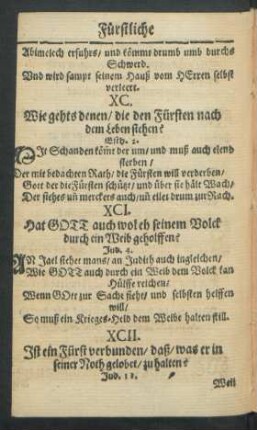 Fürstliche
Abimelech erfuhrs/ und kömmt drumb umb durchs
Schwerd.
Und wird sampt seinem Hauß vom HErren selbst
verleert.
XC.
Wie gehts denen/ die den Fürsten nach
dem Leben stehen?
Esth. 2.
Mit Schanden köm̃t der um/ und muß auch elend
sterben/
Der mit bedachten Rath/ die Fürsten will verderben/
Gott der die Fürsten schützt/ und über sie hält Wach/
Der siehes uñ merckers auch/ uñ eilet drum zur Rach.
XCI.
Hat GOTT auch wol eh seinem Volck
durch ein Weib geholffen?
Jud. 4.
An Jael siehet mans/ an Judith auch ingleichen/
Wie GOTT auch durch ein Weib dem Volck kan
Hülffe reichen/
Wenn GOtt zur Sache sieht/ und selbsten helffen
will/
So muß ein Krieges-Held dem Weibe halten still.
XCII.
Ist ein Fürst verbunden/ daß/ was er in
seiner Noth gelobet/ zu halten?
Jud. 11.
Weil